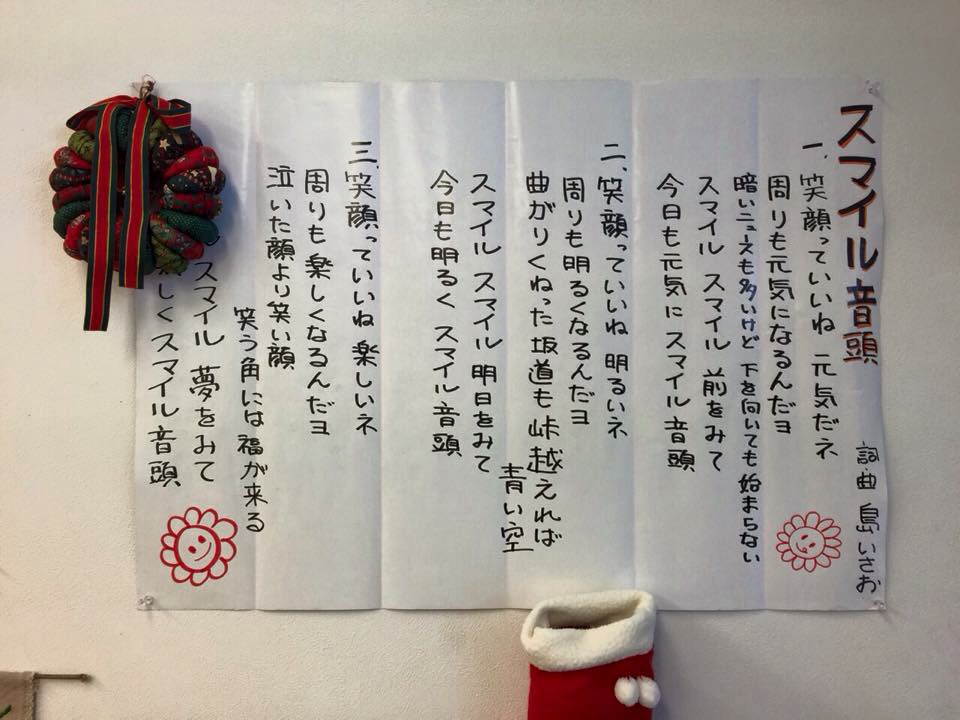 スマイル音頭
詞・曲 島いさお
一、笑顔っていいね 元気だネ
周りも元気になるんだヨ
暗いニュースも多いけど 下を向いても始まらない
スマイル スマイル 前をみて
今日も元気に スマイル音頭
二、笑顔っていいね 明るいネ
周りも明るくなるんだヨ
曲がりくねった坂道も峠越えれば
青い空
スマイル スマイル 明日をみて
今日も明るく スマイル音頭
三、笑顔っていいね 楽しいネ
周りも楽しくなるんだヨ
泣いた顔より笑い顔
笑う角には福が来る
スマイル 夢をみて
しくスマイル音頭